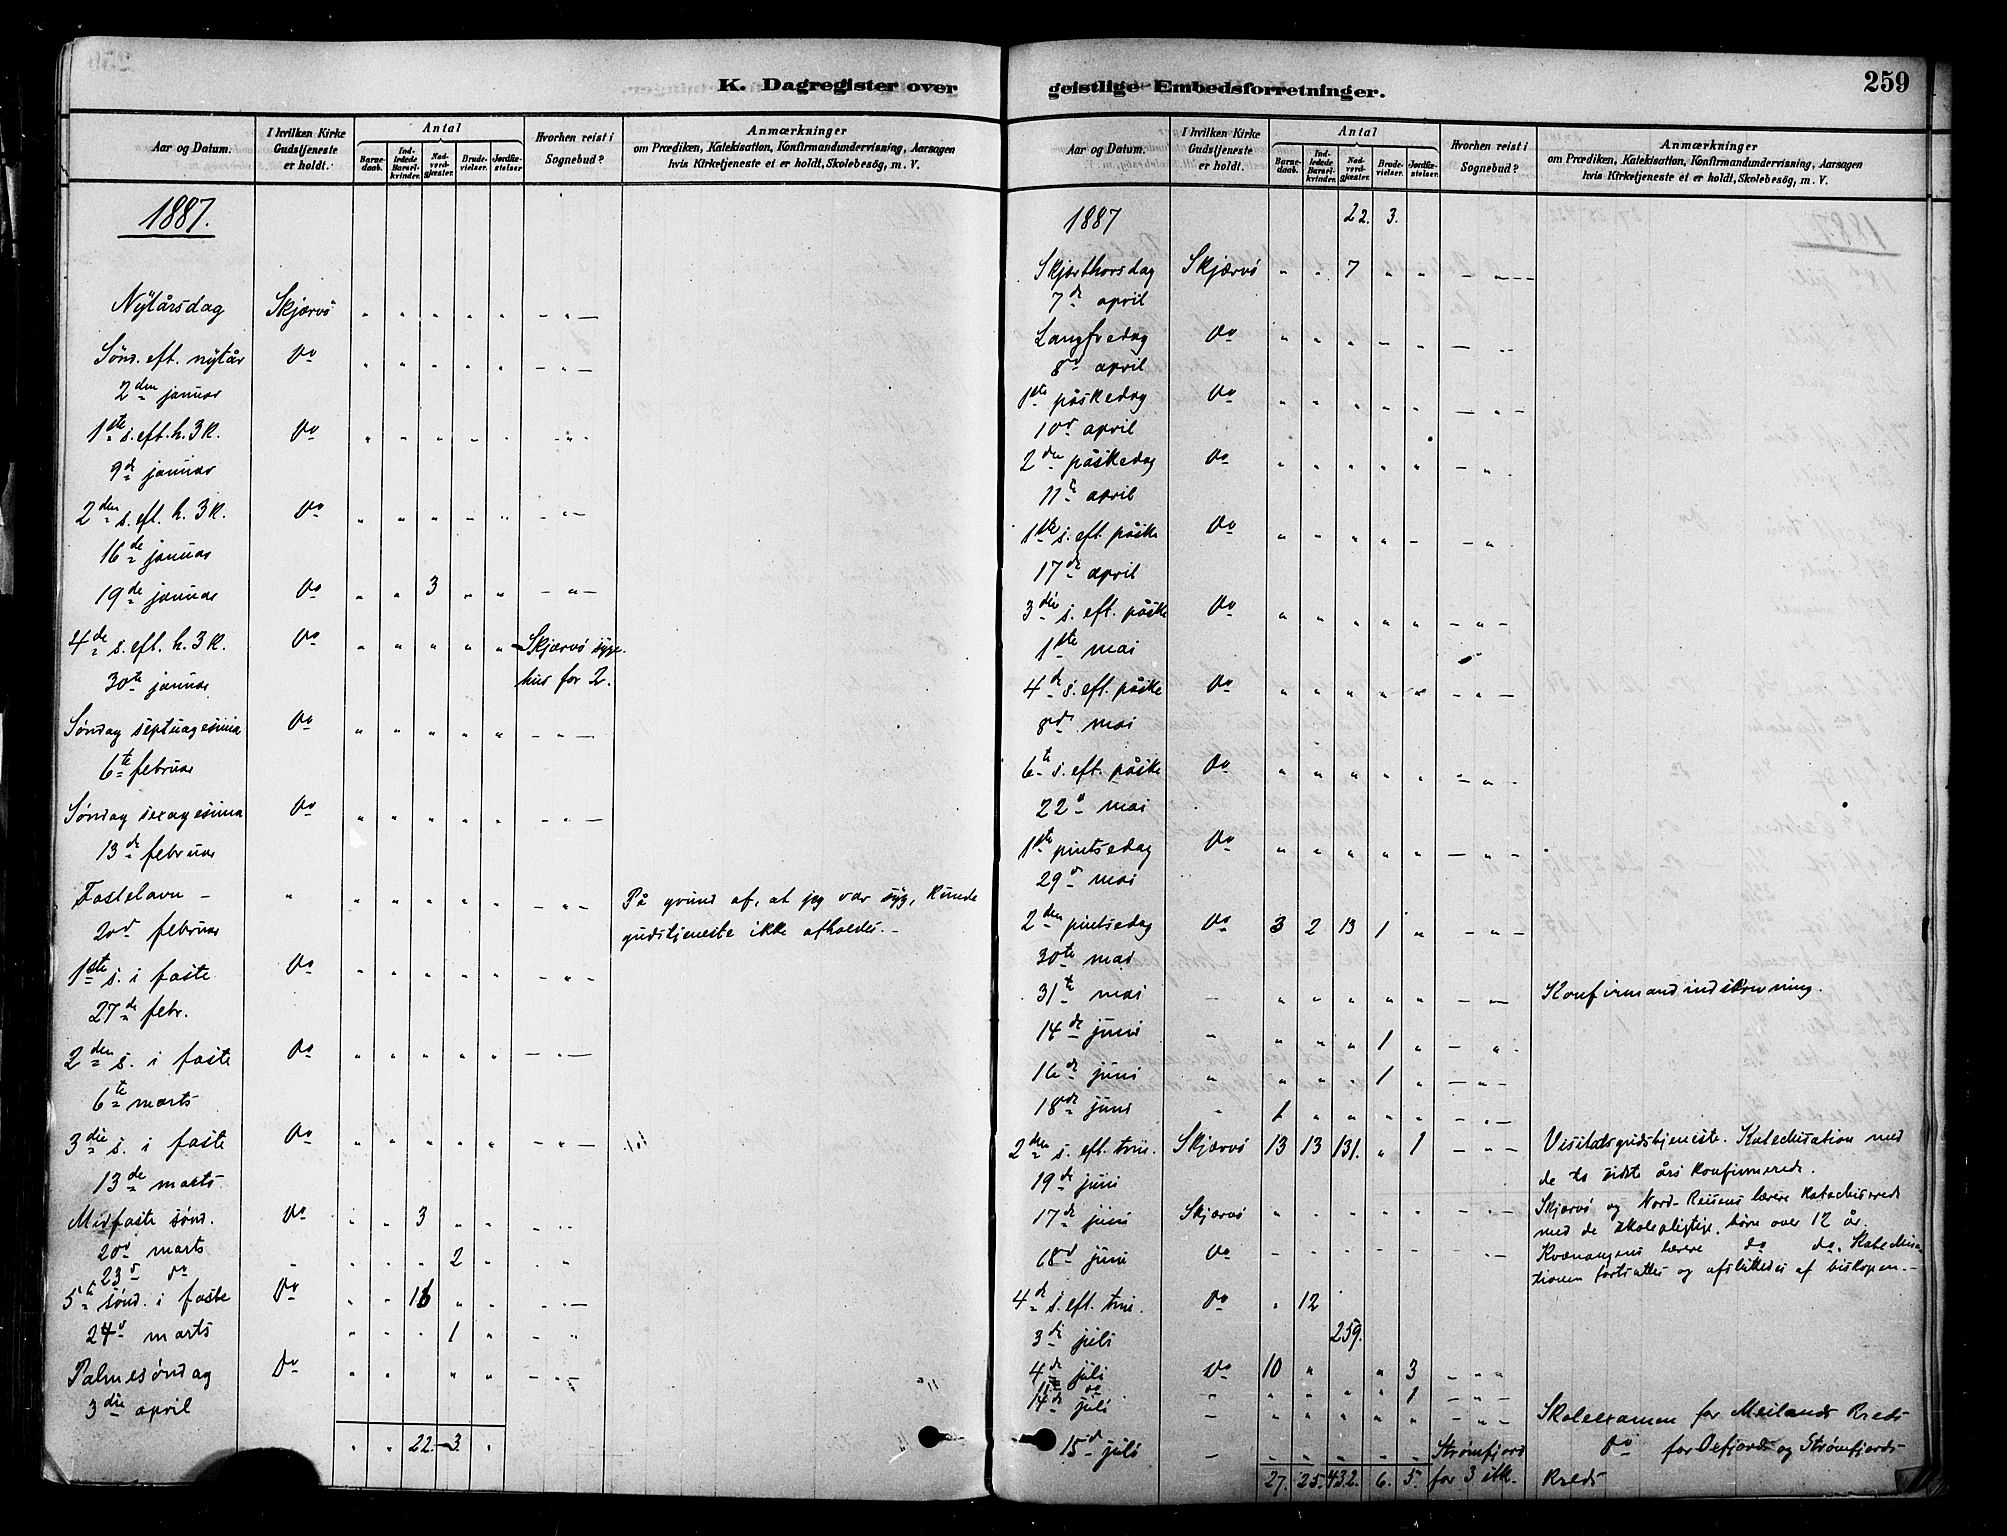 K. Dagregister over
Aar og Datum.
I hvilken Kirke Gudstjeneste er holdt.
Antal
Barnedaab.
Indledede Barselkvinder.
Nadverdgjæster.
Brudevielser.
Jordfæstelser
Hvorhen reist i Sognebud?
Anmærkninger
om Prædiken, Katekisation, Konfirmandundervisning, Aarsagen
hvis Kirketjeneste et er holdt, Skolebesög, m. V.
1887.
Nytårsdag Skjærvö " " " " " – " –
Sönd. eft. nytår Do " " " " " – " –
2den januar
1ste s. eft. h. 3 K. Do " " " " " – " –
9de januar
2den s. eft. h. 3 K. Do " " " " " – " –
16de januar
19de januar Do " " 3 " " – " –
4de s. eft. h. 3 K. Do " " " " " Skjærvö syge-
30te januar hus for 2.
Søndag septuagesima Do " " " " " – " –
6te februar
Søndag sexagesima Do " " " " " – " –
13de februar
Fastelavn – " " " " " " – " – På grund af, at jeg var syg, kunde
20d februar gudstjeneste ikke afholdes. –
1ste s. i faste Do " " " " " – " –
27de febr.
2den s. i faste Do " " " " " – " –
6te marts
3die s. i faste Do " " " " " – " –
13de marts
Midfaste sönd. Do " " 3 " " – " –
20d marts
23d do " " " 2 " – " –
5te sönd. i faste Do " " 16 " " – " –
24d marts " " " 1 " – "
Palmesöndag Do " " " " – " –
3die april
" " 22 – 3. "
geistlige Embedsforretninger.
259
Aar og Datum.
I hvilken Kirke Gudstjeneste er holdt.
Antal
Barnedaab.
Indledede Barselkvinder.
Nadverdgjæster.
Brudevielser.
Jordfæstelser
Hvorhen reist i Sognebud?
Anmærkninger
om Prædiken, Katekisation, Konfirmandundervisning, Aarsagen
hvis Kirketjeneste et er holdt, Skolebesög, m. V.
1887 22. 3.
Skjærthorsdag Skjærvö " " 7 " " – " –
7de april
Langfredag Do " " " – – – "
8d april
1ste påskedag Do " " " " " – " –
10d april
2den påskedag Do " " " " " – " –
11te april
1ste s. eft. påske Do " " " " – – "
17de april
3die s. eft. påske Do " " " " " – " –
1ste mai
4de s. eft. påske Do " " " " " – " –
8de mai
6te s. eft. påske Do " " " " " – " –
22d mai
1ste pintsedag Do " " " " " – " –
29d mai
2den pintsedag Do 3 2 13 1 " – " –
30te mai
31te mai – " " " " " – " – Konfirmandindskrivning.
14de juni " " " " 1 " – "
16de juni " " " " 1 " – " –
18de juni " 1 " " " " – " –
2den s. eft. trin. Skjærvö 13 13 131. " 1 – " – Visitatsgudstjeneste. Katechisation med
19de juni de to sidste års konfirmerede.
17de juni Skjærvö " " " " " – " – Skjærvö og Nord-Reisens lærere katechiserede
med de skolepligtige børn over 12 år.
18d juni Do – – – – – – " – Kvænangens lærere do do. Katechisa-
tionen fortsattes og afsluttedes af biskopen. –
4de s. eft. trin. Do " 12
3die juli 259.
4de juli Do 10 " " 3 – " "
11te do – " " " " 1 – " –
14de juli – " " " " " – " – Skoleexamen for Meilands Kreds
15d juli – " " " – – Strømfjord Do for Oxfjords og Strømfjords
27. 25. 432. 6. 5. for 3 stk. Kreds